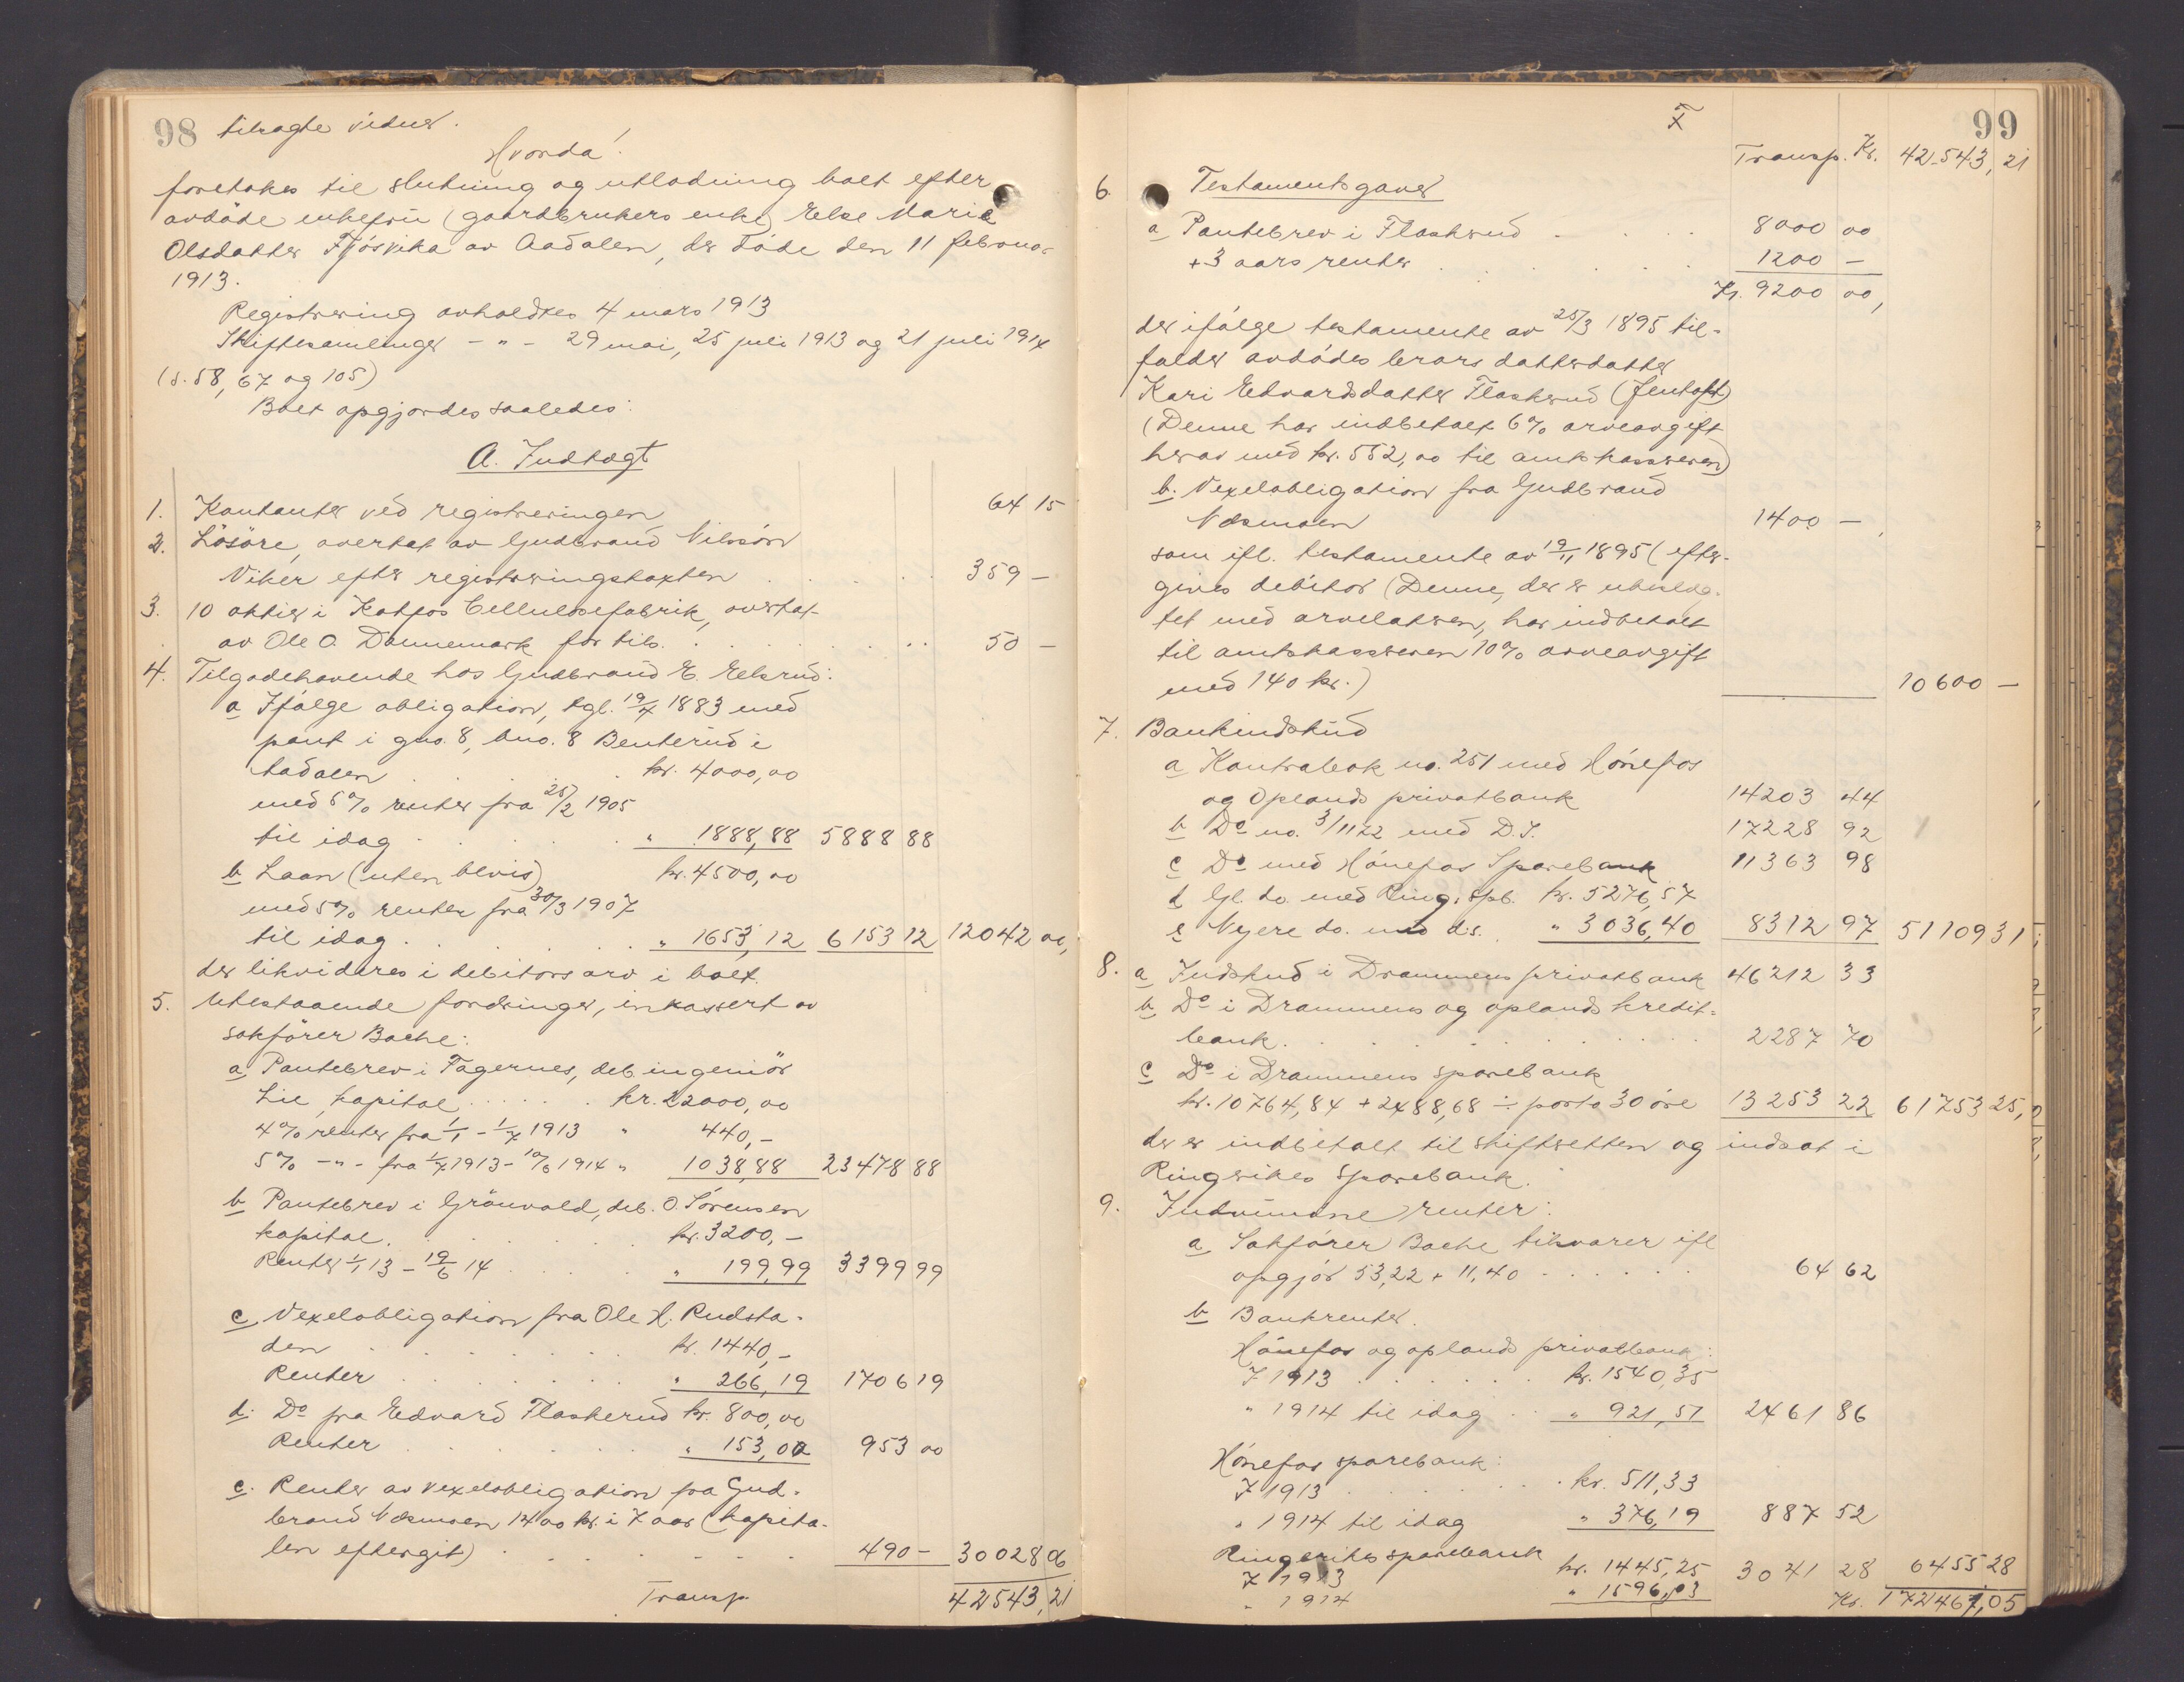 98 tilsagte vidner.
Hvorda!
foretokes til slutning og utlodning boet efter
avdöde enkefru (gaardbrukers enke) Else Marie
Olsdatter Fjösvika av Aadalen, der döde den 11 februar
1913.
Registrering avholdtes 4 mars 1913
Skiftesamlinger - " - 29 mai, 25 juli 1913 og 21 juli 1914
(s. 58, 67 og 105)
Boet opgjordes saaledes:
A. Indtægt
1. Kontanter ved registreringen 64 15
2. Lösöre, overtat av Gudbrand Nilssön
Viker efter registreringstaxten . . . . . 359 -
3. 10 aktier i Katfos Cellulosefabrik, overtat
av Ole O. Dannemark for tils. . . . . . . . . 50 -
4. Tilgodehavende hos Gudbrand E. Elsrud:
a Ifölge obligation, tgl. 19/4 1883 med
pant i gno. 8, bno. 8 Benterud i
Aadalen . . . . . kr. 4000,00
med 5% renter fra 25/2 1905
til idag . . . . . " 1888,88 5888 88
b Laan (uten bevis) kr. 4500,00
med 5% renter fra 30/3 1907
til idag . . . . . . " 1653,12 6153 12 12042 00,
der likvideres i debitors arv i boet.
5. Utestaaende fordringer, inkassert av
sakförer Bache:
a Pantebrev i Fagernes, deb. ingeniör
Lie, kapital . . . . . kr. 22000,00
4% renter fra 1/1 - 1/7 1913 " 440,-
5% - " - fra 1/7 1913 - 10/6 1914 " 1038,88 23478 88
b Pantebrev i Grönvold, deb. O. Sörensen
kapital . . . . . . kr. 3200,-
Renter 1/1 13 - 19/6 14 . . . . " 199,99 3399 99
c Vexelobligation fra Ole H. Rudsta-
den . . . . . . kr. 1440,-
Renter . . . . . . " 266,19 1706 19
d. Do fra Edvard Flaskerud kr. 800,00
Renter . . . . . . " 153,00 953 00
e. Renter av vexelobligation fra Gud-
brand Næsmoen 1400 kr. i 7 aar (kapita-
len eftergit) . . . . . . . 490 - 30028 06
Transp. 42543,21
99
Transp. Kr. 42543,21
6. Testamentsgaver
a Pantebrev i Flaskerud . . . . 8000 00
+ 3 aars renter . . . . . . . 1200 -
Kr. 9200 00,
der ifölge testamente av 25/3 1895 til-
falder avdödes brors datterdatter
Kari Edvardsdatter Flaskerud (Jentoft)
(Denne har indbetalt 6% arveavgift
herav med kr. 552,00 til amtskassereren)
b. Vexelobligation fra Gudbrand
Næsmoen 1400 -,
som ifl. testamente av 19/11 1895 (efter-
gives debitor (Denne, der er ubeslæg-
tet med arvelateren, har indbetalt
til amtskassereren 10% arveavgift
med 140 kr.) 10600 -
7. Bankindskud
a Kontrabok no. 251 med Hönefos
og Oplands privatbank 14203 44
b Do no. 3/1172 med D.S. 17228 92
c Do med Hönefos Sparebank 11363 98
d Gl. do. med Ring. spb. kr. 5276,57
e Nyere do. med d.s. " 3036,40 8312 97 51109 31
8. a Indskud i Drammens privatbank 46212 33
b Do i Drammens og oplands kredit-
bank . . . . . . . . . 2287 70
c Do i Drammens sparebank
kr. 10764,84 + 2488,68 ÷ porto 30 öre 13253 22 61753 25,
der er indbetalt til skifteretten og indsat i
Ringerikes Sparebank.
9. Indvundne renter:
a Sakförer Bache tilsvarer ifl
opgjör 53,22 + 11,40 . . . . . . 64 62
b Bankrenter.
Hönefos og oplands privatbank:
I 1913 . . . . . . kr. 1540,35
" 1914 til idag . . " 921,51 2461 86
Hönefos sparebank:
I 1913 . . . . . . . kr. 511,33
" 1914 til idag " 376,19 887 52
Ringerikes sparebank
I 1913 kr. 1445,25 3041 28 6455 28
" 1914 " 1596,03 Kr. 172461,05